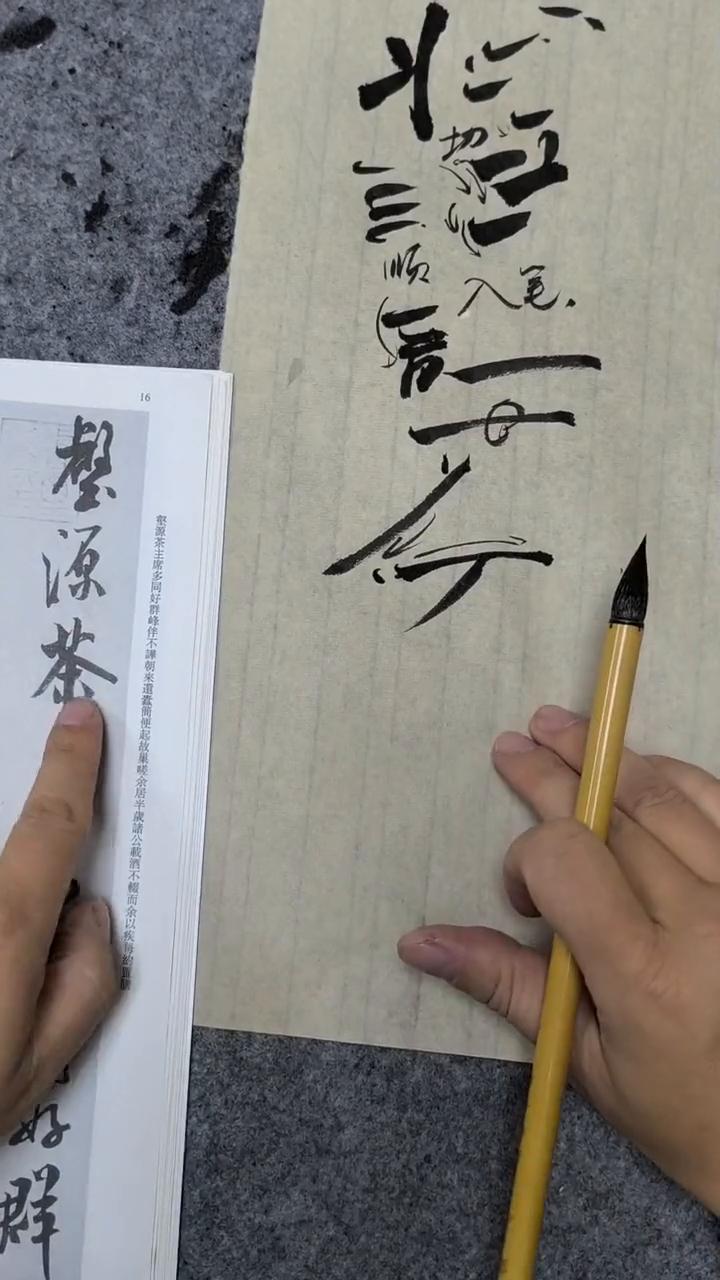 切
三
顺
入笔.
16
壑源茶主席多同好群峰伴不譁朝來還蠹簡便起故巢嗟余居半歲諸公載酒不輟而余以疾每約置膳
壑源茶
好群